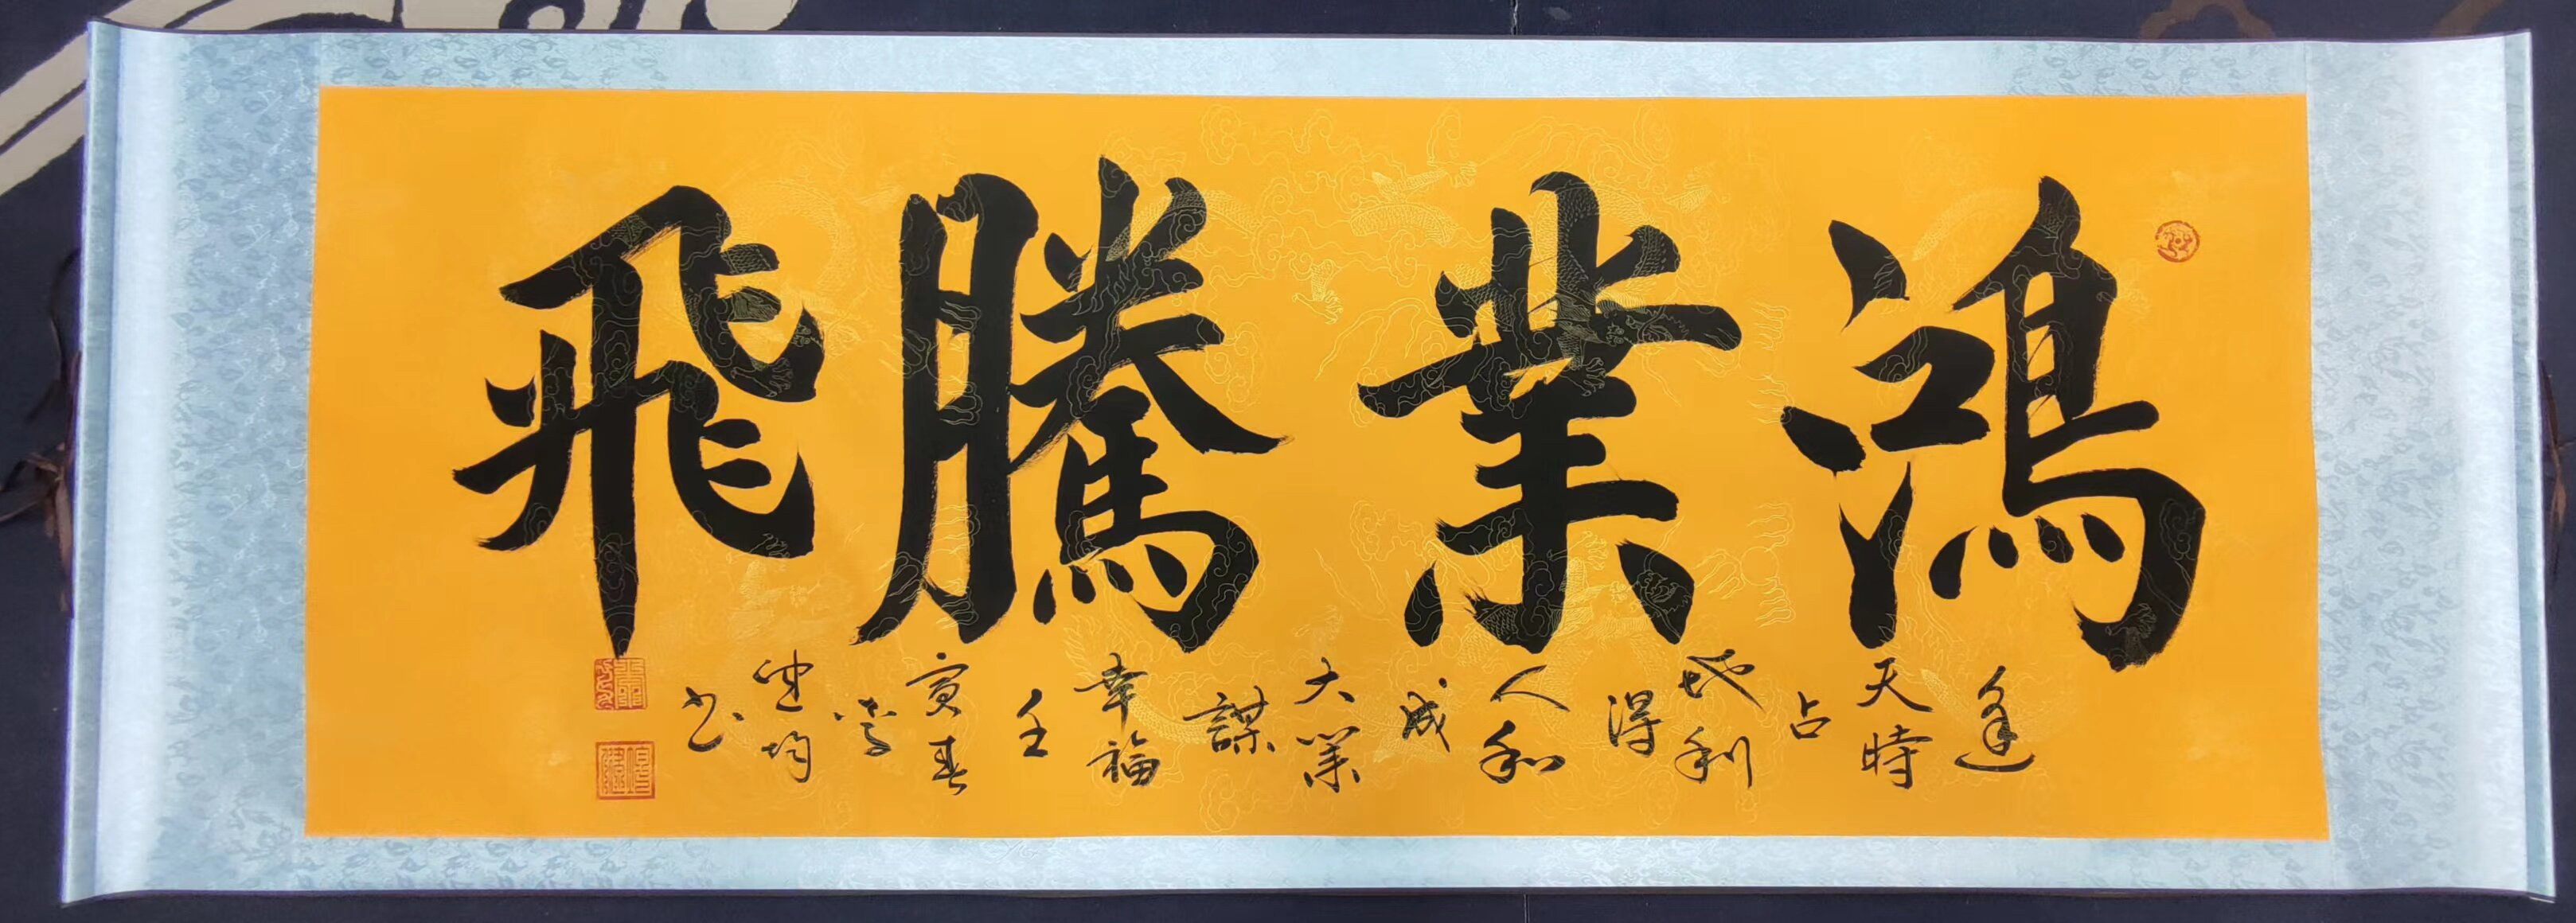 鴻業騰飛
逢天時占地利得人和成大業謀幸福壬寅春
書